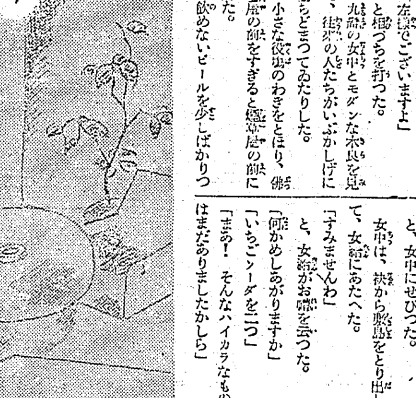 左樣でございますよ」
と相づちを打つた。
丸髷の女中とモダンな衣良を見
、往來の人たちがいぶかしげに
ちどまつてゐたりした。
小さな役場のわきをとほり、佛
屋の前をすぎると煙草屋の前に
た。
飮めないビールを少しばかりつ
と、女中にせびつた。
女中は、袂から敷島をとり出し
て、女給にあたへた。
「すみませんわ」
と、女給がお禮を云つた。
「何かめしあがりますか」
「いちごソーダを二つ」
「まあ！そんなハイカラなもの
はまだありましたかしら」